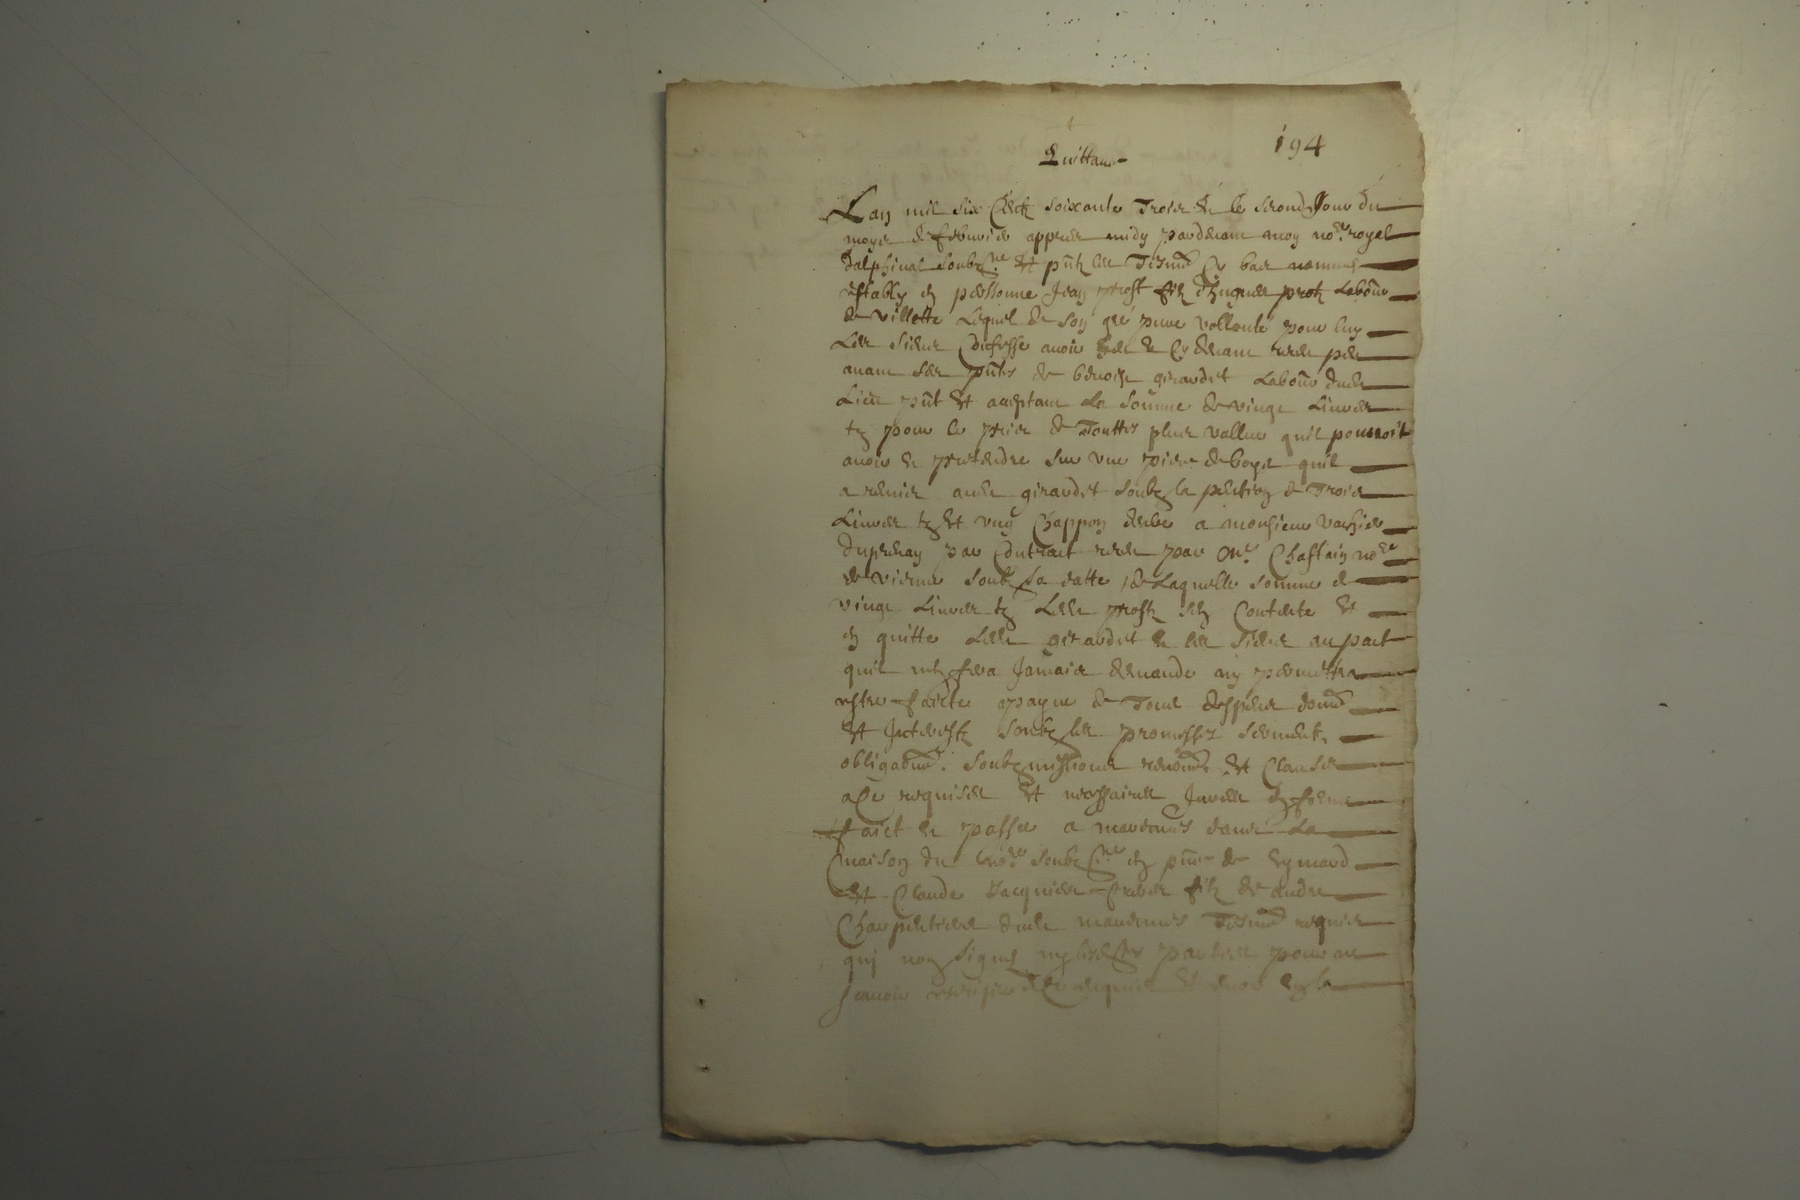 194
Quittance
Lan mil six centz soixante Trois et le second Jour du
moys de febvrier appres midy pardevant moy no.re royal
dalphinal soubz.ne et pñtz les Tesmᵒ cy bas nommes
estably en personne Jean prost filz dhugues prost Labour
de villette Lequel de son gré pure vollonté pour luy
Les siens Confesse avoir heu et cy devant receu
avant ses pñtes de benoist girardet Labour dud
Lieu pñt et acceptant La somme de vingt Livres
tz pour le prix de Touttes plus vallue quil pourroit
avoir et pretendre sur une piece de boys quil
a remis aud girardet soubz la pention de Trois
Livres tz et ung Chappon deubz a monsieur vachier
par Contract receu par Me Chastain no.re
de vienne soubz sa datte, de Laquelle somme de
vingt Livres tz Led prost sen Contente et
en quitte Led girardet et les siens au pact
quil nen fera Jamais demande ny permettra
estre faicte a payne de Tous despens dom
et Interestz soubz les promesses serment
obligaõns. soubzmissions renonᵒ et Clauses
a ce requises et necessaires Jurees en forme
faict et passé a marennes dans La
maison du no.re soubz.ne en pñce de eymard
et Claude Jacquier freres filz de andre
Charpentiers dud marennes Tesmᵒ requis
qui nont signé ny lesd parties pour ne
scavoir de ce requis et